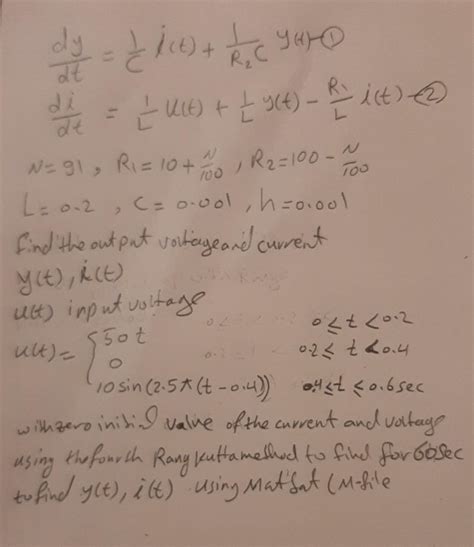 dy/dt = 1/C i(t) + 1/R₂C y(t) -①
di/dt = 1/L u(t) + 1/L y(t) - R₁/L i(t) -②
N=91, R₁=10+N/100, R₂=100-N/100
L=0.2, C=0.001, h=0.001
find the output voltage and current
y(t), i(t)
u(t) input voltage
u(t)= { 50t 0≤t<0.2
0 0.2≤t<0.4
10sin(2.5π(t-0.4)) 0.4≤t≤0.6sec
with zero initial value of the current and voltage
using the fourth Rang kutta method to find for
to find y(t), i(t) using (M-file